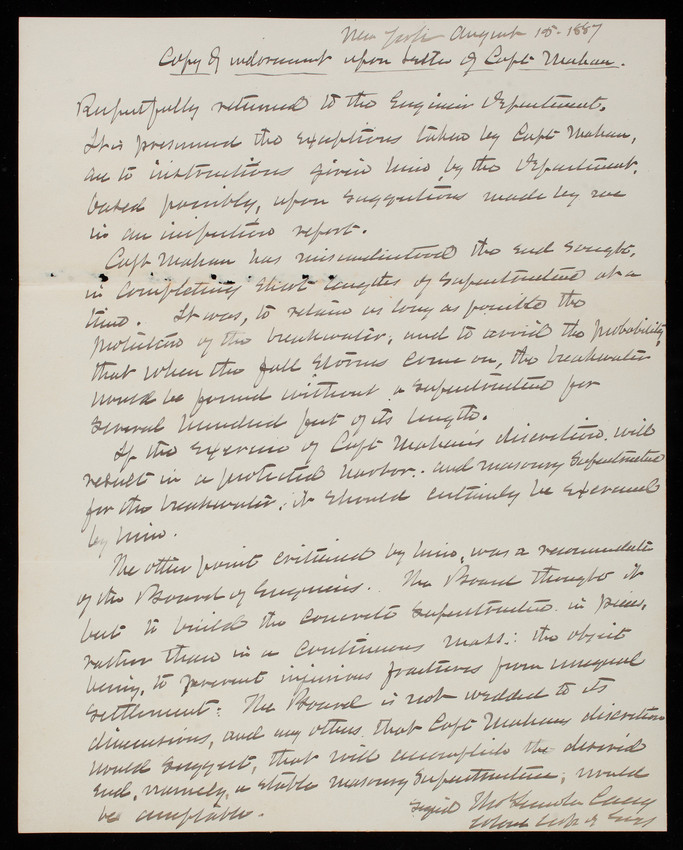 New York August 15. 1887
Copy of indorsement upon letter of Capt Mahan.
Respectfully returned to the Engineer Department.
It is presumed the exceptions taken by Capt Mahan,
are to instructions given him, by the Department,
based possibly, upon suggestions made by me
in an inspection report.
Capt Mahan has misunderstood the end sought,
in completing short lengths of superstructure at a
time. It was, to retain as long as possible the
protection of the breakwater, and to avoid the probability,
that when the fall storms come on, the breakwater
would be found without a superstructure for
several hundred feet of its length.
If the exercise of Capt Mahan's discretion will
result in a protected harbor: and masonry superstructure
for the breakwater; it should certainly be exercised
by him.
The other point criticised by him, was a recommendation
of the Board of Engineers. The Board thought it
best to build the concrete superstructure in pieces,
rather than in a continuous mass: the object
being, to prevent injurious fractures from unequal
settlement: The Board is not wedded to its
dimensions, and any others that Capt Mahans discretion
would suggest, that will accomplish the desired
end, namely, a stable masonry superstructure, would
be acceptable.
Signed Thos Lincoln Casey
Colonel Corps of Engrs